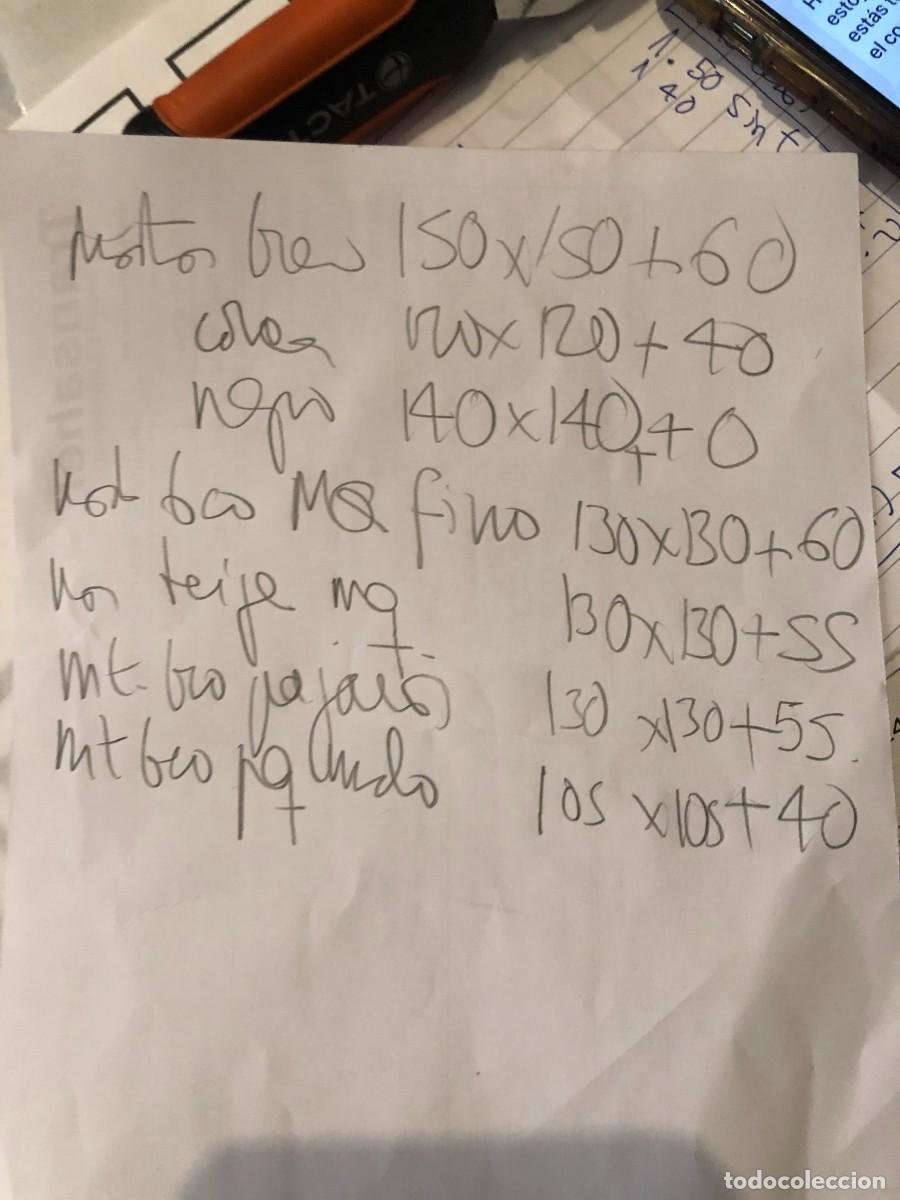 esto
estás t
el co
TAC
1. 50 sin t
1 40
bco 150x150+60
120x120+40
negro 140x140+0
bco MQ fino 130x130+60
beige mq 130x130+55
mt. bco pajaros 130 x130+55.
mt bco pq 105 x105+40
todocoleccion